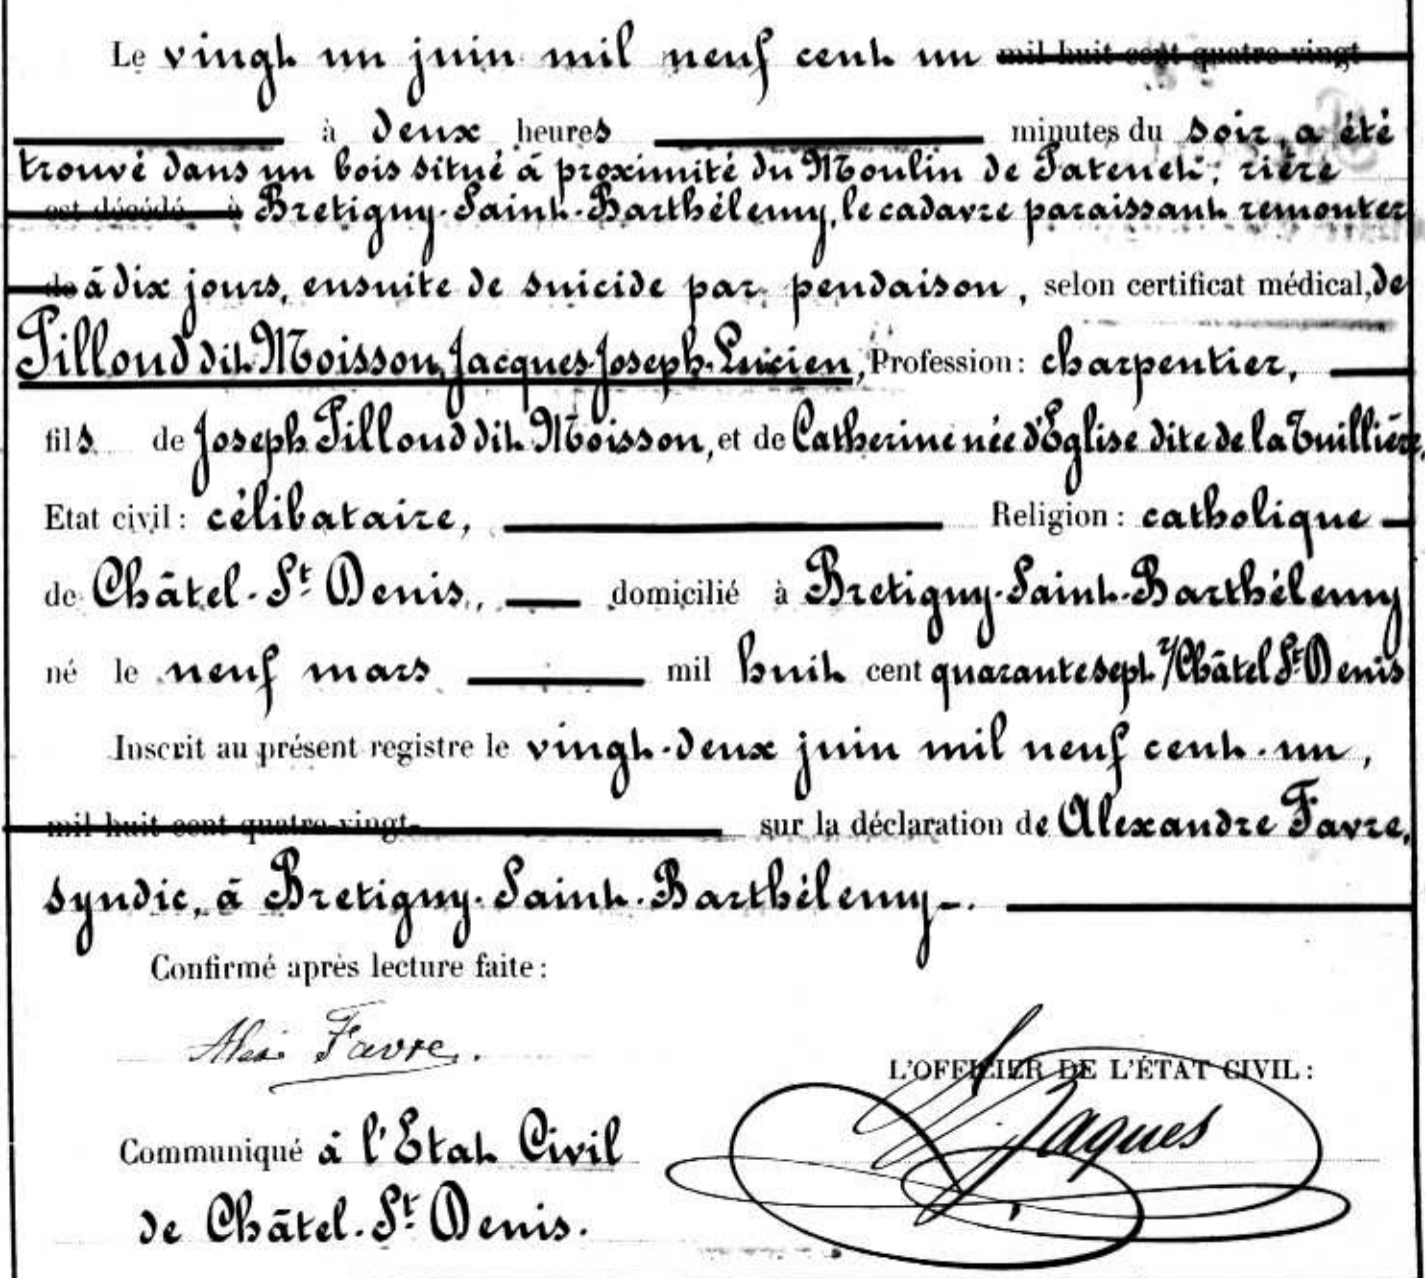 Le vingt un juin mil neuf cent un mil huit cent quatre-vingt
à deux heures minutes du soir a été
trouvé dans un bois situé à proximité du Moulin de ; rière
est décédé à Bretigny-Saint-Barthélemy, le cadavre paraissant remonter
de à dix jours, ensuite de suicide par pendaison, selon certificat médical, de
Pilloud dit Moisson, Jacques-Joseph-Lucien, Profession: charpentier,
fils de Joseph Pilloud dit Moisson, et de Catherine née d'Eglise dite de la Tuillière,
Etat civil: célibataire, Religion: catholique
de Châtel-St Denis, domicilié à Bretigny-Saint-Barthélemy
né le neuf mars mil huit cent quarante sept à Châtel St Denis
Inscrit au présent registre le vingt-deux juin mil neuf cent-un,
mil huit cent quatre-vingt- sur la déclaration de Alexandre Favre,
syndic, à Bretigny-Saint-Barthélemy-.
Confirmé après lecture faite:
Favre.
L'OFFICIER DE L'ÉTAT CIVIL:
Jaques
Communiqué à l'Etat Civil
de Châtel-St Denis.